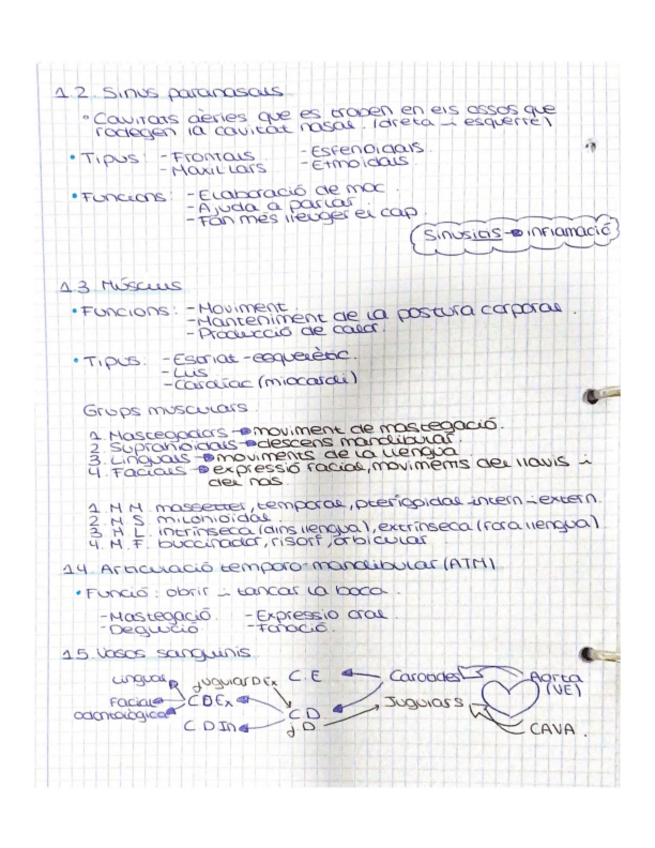 1.2. Sinus paranasals
• Cavitats aèries que es troben en els ossos que
rodegen la cavitat nasal. (dreta i esquerre)
• Tipus: - Frontals - Esfenoidals
- Maxil·lars - Etmoidals
• Funcions: - Elaboració de moc
- Ajuda a parlar
- Fan més lleuger el cap
Sinusitis → inflamació
1.3 Músculs
• Funcions: - Moviment.
- Manteniment de la postura corporal.
- Producció de calor.
• Tipus: - Estriat - esquelètic.
- Llis
- Cardíac (miocardi)
Grups musculars
1. Mastegadors → moviment de mastegació.
2. Suprahioidals → descens mandibular
3. Linguals → moviments de la llengua
4. Facials → expressió facial, moviments del llavis i
del nas.
1. M M. massetter, temporal, pterigoidal intern i extern.
2. M S milohioidal
3. M L. intrínseca (dins llengua), extrínseca (fora llengua)
4. M. F. buccinador, risori, orbicular
1.4 Articulació temporo-mandibular (ATM)
• Funció: obrir i tancar la boca.
- Mastegació - Expressió oral.
- Deglució - Fonació.
1.5. Vasos sanguinis
Lingual JugularDEx C.E ← Carotides Aorta
(VE)
Facial CDEx Jugulars
odontològica CD
CDIn JD CAVA.